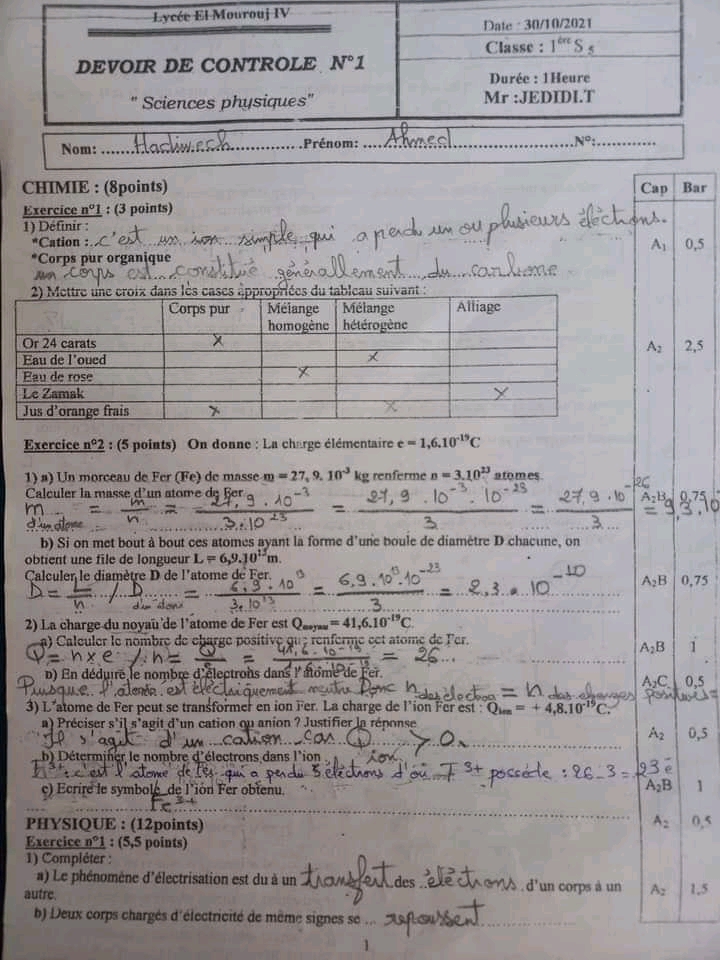 Lycée El Mourouj IV
DEVOIR DE CONTROLE N°1
" Sciences physiques"
Date : 30/10/2021
Classe : 1ère S 5
Durée : 1Heure
Mr :JEDIDI.T
Nom: Hadiwech Prénom: Ahmed N°:
CHIMIE : (8points)
Cap Bar
Exercice n°1 : (3 points)
1) Définir :
*Cation : c'est un ion simple qui a perdu un ou plusieurs éléctrons. A1 0,5
*Corps pur organique
un corps est constitué générallement du carbone
2) Mettre une croix dans les cases appropriées du tableau suivant :
Corps pur Mélange homogène Mélange hétérogène Alliage
Or 24 carats x
Eau de l'oued x A2 2,5
Eau de rose x
Le Zamak x
Jus d'orange frais x x
Exercice n°2 : (5 points) On donne : La charge élémentaire e = 1,6.10⁻¹⁹C
1) a) Un morceau de Fer (Fe) de masse m = 27, 9. 10⁻³ kg renferme n = 3.10²³ atomes.
Calculer la masse d'un atome de Fer. A2B 0,75
m d'un atome = m/n = 27,9 . 10⁻³ / 3.10²³ = 27,9 . 10⁻³ . 10⁻²³ / 3 = 27,9 . 10⁻²⁶ / 3 = 9,3.10
b) Si on met bout à bout ces atomes ayant la forme d'une boule de diamètre D chacune, on
obtient une file de longueur L = 6,9.10¹³m.
Calculer le diamètre D de l'atome de Fer. A2B 0,75
D = L/n / D d'un atome = 6,9 . 10¹³ / 3.10²³ = 6,9 . 10¹³.10⁻²³ / 3 = 2,3 . 10⁻¹⁰
2) La charge du noyau de l'atome de Fer est Qnoyau = 41,6.10⁻¹⁹C.
a) Calculer le nombre de charge positive que renferme cet atome de Fer. A2B 1
Q = n x e / n = Q/e = 41,6.10⁻¹⁹ = 26
b) En déduire le nombre d'électrons dans l'atome de Fer. A2C 0,5
Puisque l'atome est éléctriquement neutre Donc n des électron = n des charges positives =
3) L'atome de Fer peut se transformer en ion Fer. La charge de l'ion Fer est : Qion = + 4,8.10⁻¹⁹C.
a) Préciser s'il s'agit d'un cation ou anion ? Justifier la réponse A2 0,5
Il s'agit d'un cation car Q ion > 0
b) Déterminer le nombre d'électrons dans l'ion
c'est l'atome de fer qui a perdu 3 éléctrons d'où F³⁺ possède : 26 - 3 = 23 e⁻
c) Ecrire le symbole de l'ion Fer obtenu. A2B 1
Fe³⁺
PHYSIQUE : (12points) A2 0,5
Exercice n°1 : (5,5 points)
1) Compléter :
a) Le phénomène d'électrisation est du à un transfert des éléctrons d'un corps à un
autre. A2 1,5
b) Deux corps chargés d'électricité de même signes se ... repoussent
1